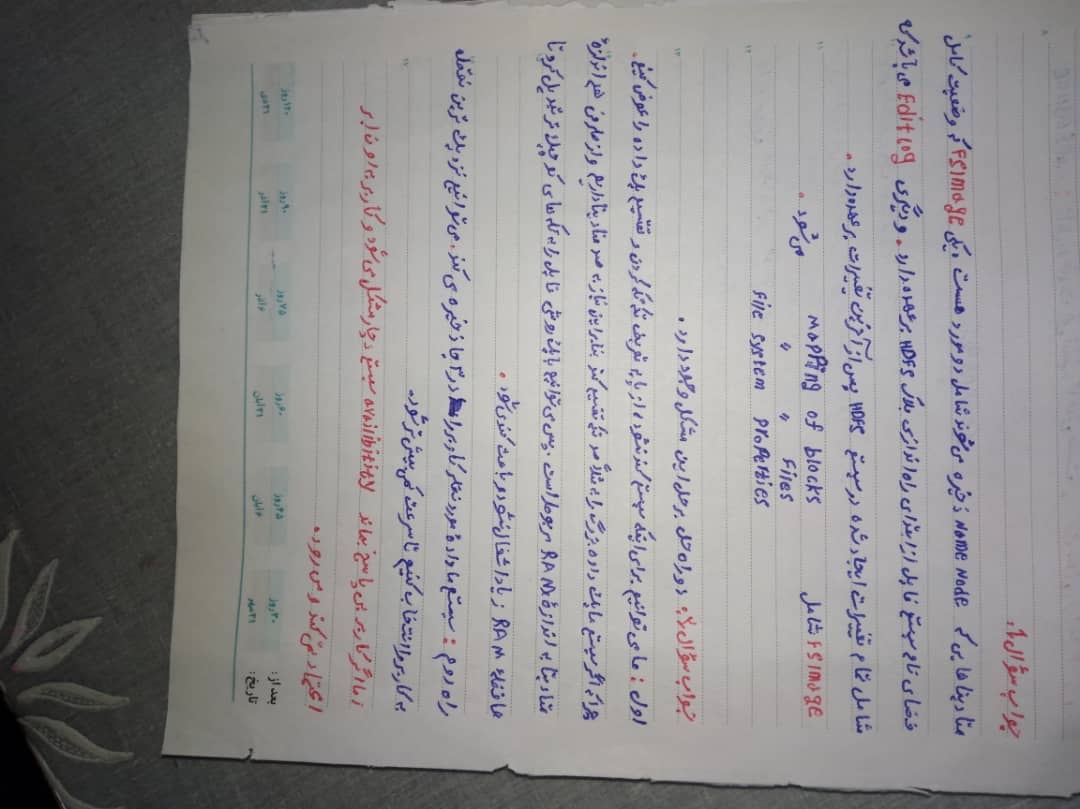 جواب سؤال 1:
متادیتاهایی که Name Node ذخیره می‌شوند شامل دو مورد هست. یکی FSImage که وضعیت کامل
فضای نام سیستم فایل از ابتدای راه اندازی بلاک HDFS برعهده دارد. و دیگری EditLog می‌باشد که
شامل تمام تغییرات ایجاد شده در سیستم HDFS پس از آخرین تغییرات برعهده دارد.
FSImage شامل Mapping of blocks می‌شود.
〃 〃 Files
File System Properties
جواب سؤال ۲: دو راه حل بر حل این مشکل وجود دارد.
اول: ما می توانیم برای اینکه سیستم کند نشود، از پایه تعریف تکه تکه کردن و تقسیم یک داده را عوض کنیم.
چرا که اگر سیستم ما یک داده بزرگ را به مثلاً صد تکه تقسیم کند بنابراین نیاز به صد متادیتا داریم و از طرفی هم اندازهٔ
متادیتا به اندازهٔ RAM مربوط است. پس می‌توانیم با یک روشی فایل را به تکه های کوچیک تر تبدیل کرد تا
حافظهٔ RAM زیاد اشغال نشود و باعث کندی شود.
راه دوم: سیستم ما دادهٔ مورد نظر کاربر را در ۳ جا ذخیره می کند. می توانیم نزدیک ترین نقطه
به کاربر را انتخاب کنیم تا سرعت کمی بیش تر شود.
اما اگر کاربر بی پاسخ بماند availibitity سیستم دچار مشکل می شود و کاربر به اون ابر
اعتماد نمی کند و می رود.
بعد از: ۳۰روز ۴۵روز ۶۰روز ۷۵روز ۹۰روز ۱۲۰روز
تاریخ: ۲۱مهر ۶آبان ۲۱آبان ۶آذر ۲۱آذر ۲۱دی